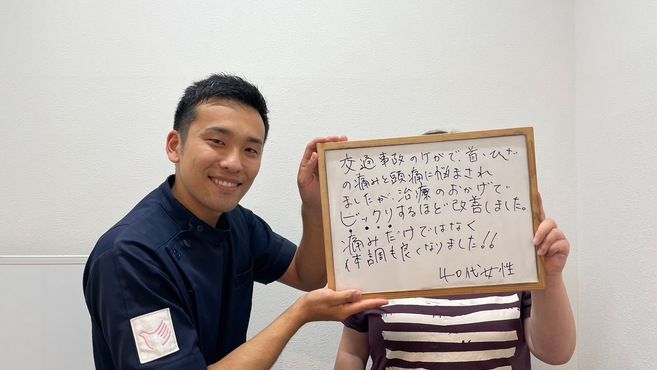 交通事故のケガで、首・ひざ
の痛みと頭痛に悩まされ
ましたが、治療のおかげで
ビックリするほど改善しました。
痛みだけではなく
体調も良くなりました!!
40代女性